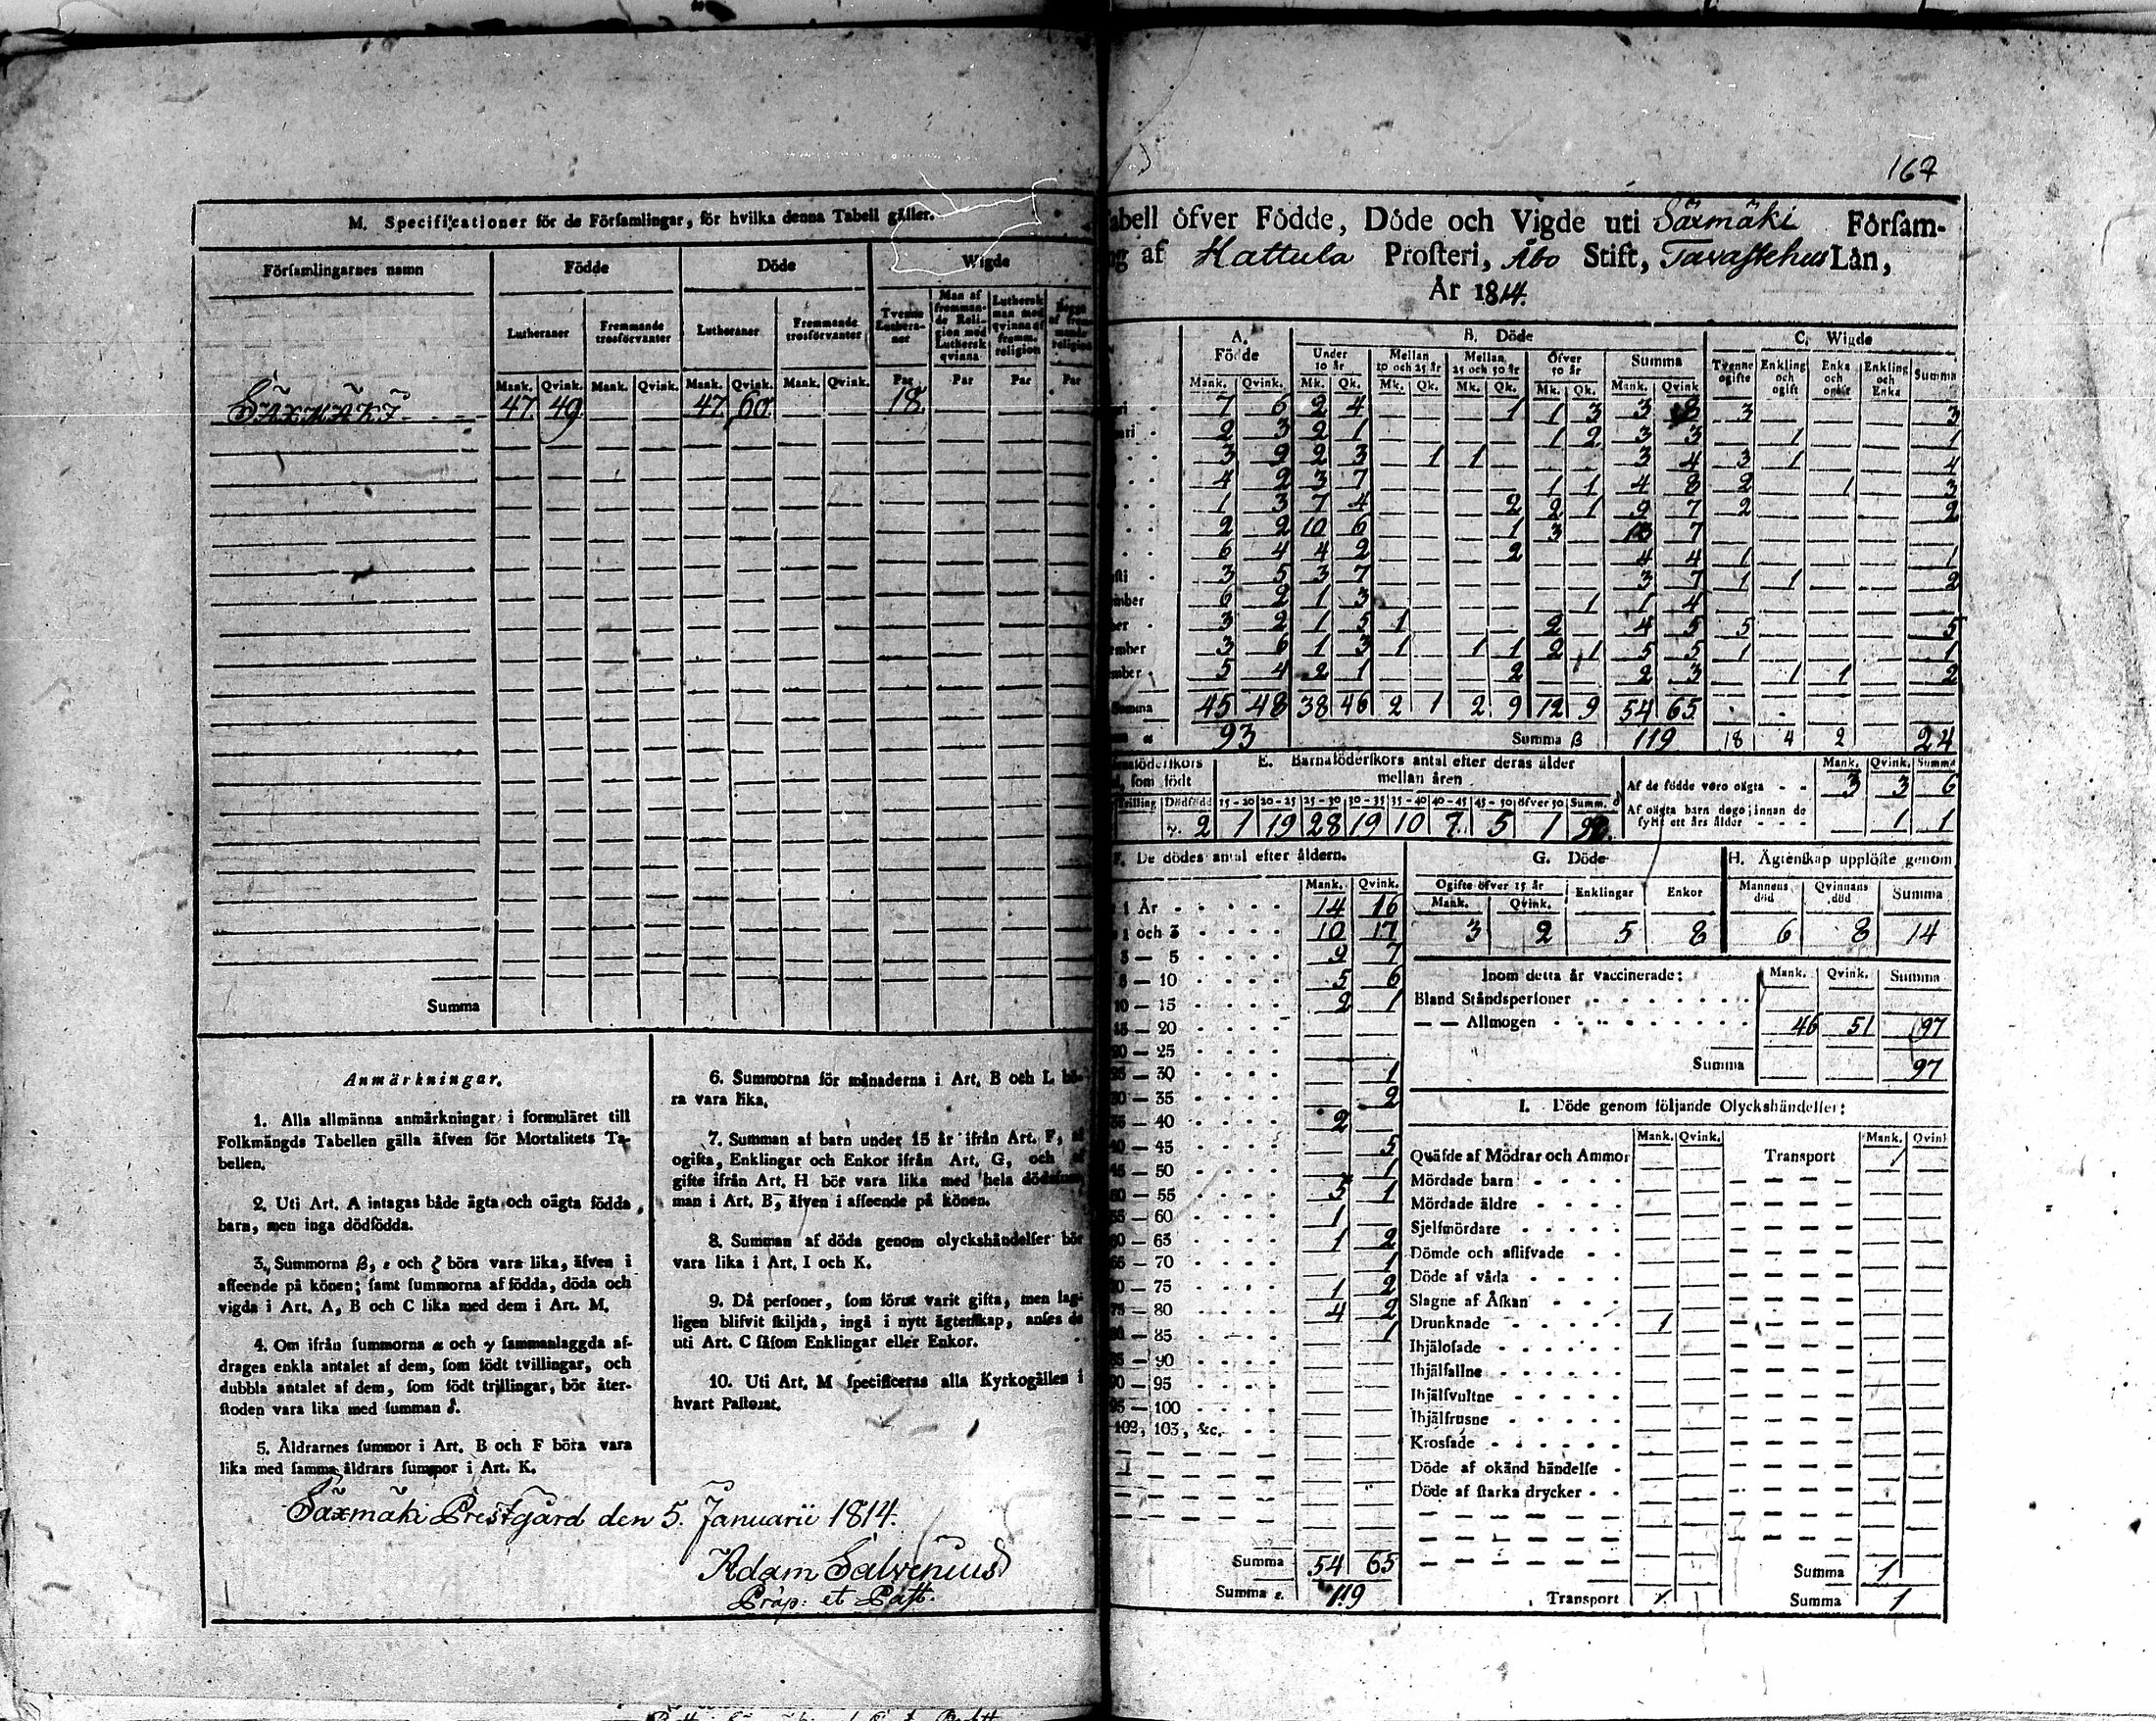 M. Specificationer för de Församlingar, för hvilka denna Tabell gäller.
Församlingarnes namn Födde Döde Wigde
Lutheraner Fremmande trosförvanter Lutheraner Fremmande trosförvanter Tvenne Lutheraner Man af fremmande Religion med Luthersk qvinna Luthersk man med qvinna af fremm. religion
Mank. Qvink. Mank. Qvink. Mank. Qvink. Mank. Qvink. Par Par Par Par
SÄXMÄKI 47. 49. 47. 60. 18.
Summa
Anmärkningar.
1. Alla allmänna anmärkningar i formuläret till
Folkmängds Tabellen gälla äfven för Mortalitets Ta-
bellen.
2. Uti Art. A intagas både ägta och oägta födda
barn, men inga dödfödda.
3. Summorna β, ε och ζ böra vara lika, äfven i
afseende på könen; samt summorna af födda, döda och
vigda i Art. A, B och C lika med dem i Art. M.
4. Om ifrån summorna α och γ sammanlaggda af-
drages enkla antalet af dem, som födt tvillingar, och
dubbla antalet af dem, som födt trillingar, bör åter-
stoden vara lika med summan δ.
5. Åldrarnes summor i Art. B och F böra vara
lika med samma åldrars summor i Art. K.
6. Summorna för månaderna i Art. B och L bö-
ra vara lika.
7. Summan af barn under 15 år ifrån Art. F, af
ogifta, Enklingar och Enkor ifrån Art. G, och af
gifte ifrån Art. H bör vara lika med hela dödssum-
man i Art. B, äfven i afseende på könen.
8. Summan af döda genom olyckshändelser bör
vara lika i Art. I och K.
9. Då personer, som förut varit gifta, men lag-
ligen blifvit skiljda, ingå i nytt ägtenskap, anses de
uti Art. C såsom Enklingar eller Enkor.
10. Uti Art. M specificeras alla Kyrkogällen i
hvart Pastorat.
Säxmäki Prestgård den 5. Januarii 1814.
Adam Salvenius
Präp: et Past.
167
Tabell öfver Födde, Döde och Vigde uti Säxmäki Försam-
ng af Hattula Prosteri, Åbo Stift, Tavastehus Län,
År 1814.
A. Födde B. Döde C. Wigde
Under 10 år Mellan 10 och 25 år Mellan 25 och 50 år Öfver 50 år Summa Tvenne ogifte Enkling och ogift Enka och ogift Enkling och Enka Summa
Mank. Qvink. Mk. Qk. Mk. Qk. Mk. Qk. Mk. Qk. Mank. Qvink
7 6 2 4 1 1 3 3 8 3 3
2 3 2 1 1 2 3 3 1 1
3 9 2 3 1 1 3 4 3 1 4
4 2 3 7 1 1 4 8 2 1 3
1 3 7 4 2 2 1 9 7 2 2
2 2 10 6 1 3 13 7
6 4 4 2 2 4 4 1 1
3 5 3 7 3 7 1 1 2
mber 6 2 1 3 1 1 4
ber 3 2 1 5 1 2 4 5 5 5
ember 3 6 1 3 1 1 1 2 1 5 5 1 1
mber 5 4 2 1 2 2 3 1 1 2
Summa 45 48 38 46 2 1 2 9 12 9 54 65
α 93 Summa β 119 18 4 2 24
E. Barnaföderskors antal efter deras ålder
mellan åren
som födt
Trilling Dödfödd 15-20 20-25 25-30 30-35 35-40 40-45 45-50 öfver 50 Summ. δ
γ. 2 1 19 28 19 10 7 5 1
Mank. Qvink. Summa
Af de födde voro oägta 3 3 6
Af oägta barn dogo innan de
fyllt ett års ålder 1 1
F. De dödes antal efter åldern.
Mank. Qvink.
1 År 14 16
1 och 3 10 17
3 — 5 9 7
5 — 10 5 6
10 — 15 2 1
15 — 20
20 — 25
25 — 30 1
30 — 35 2
35 — 40 2
40 — 45 5
45 — 50 1
50 — 55 5 1
55 — 60 1
60 — 65 1 2
65 — 70 1
70 — 75 1 2
75 — 80 4 2
80 — 85 1
85 — 90
90 — 95
95 — 100
102, 103, &c.
Summa 54 65
Summa ε. 119
G. Döde
Ogifte öfver 15 år Enklingar Enkor
Mank. Qvink.
3 2 5 8
H. Ägtenskap upplöste genom
Mannens död Qvinnans död Summa
6 8 14
Inom detta år vaccinerade: Mank. Qvink. Summa
Bland Ståndspersoner
— — Allmogen 46 51 97
Summa 97
I. Döde genom följande Olyckshändelser:
Mank. Qvink. Mank. Qvink
Qväfde af Mödrar och Ammor Transport 1
Mördade barn
Mördade äldre
Sjelfmördare
Dömde och aflifvade
Döde af våda
Slagne af Åskan
Drunknade 1
Ihjälosade
Ihjälfallne
Ihjälsvultne
Ihjälfrusne
Krossade
Döde af okänd händelse
Döde af starka drycker
Summa 1
Transport 1 Summa 1